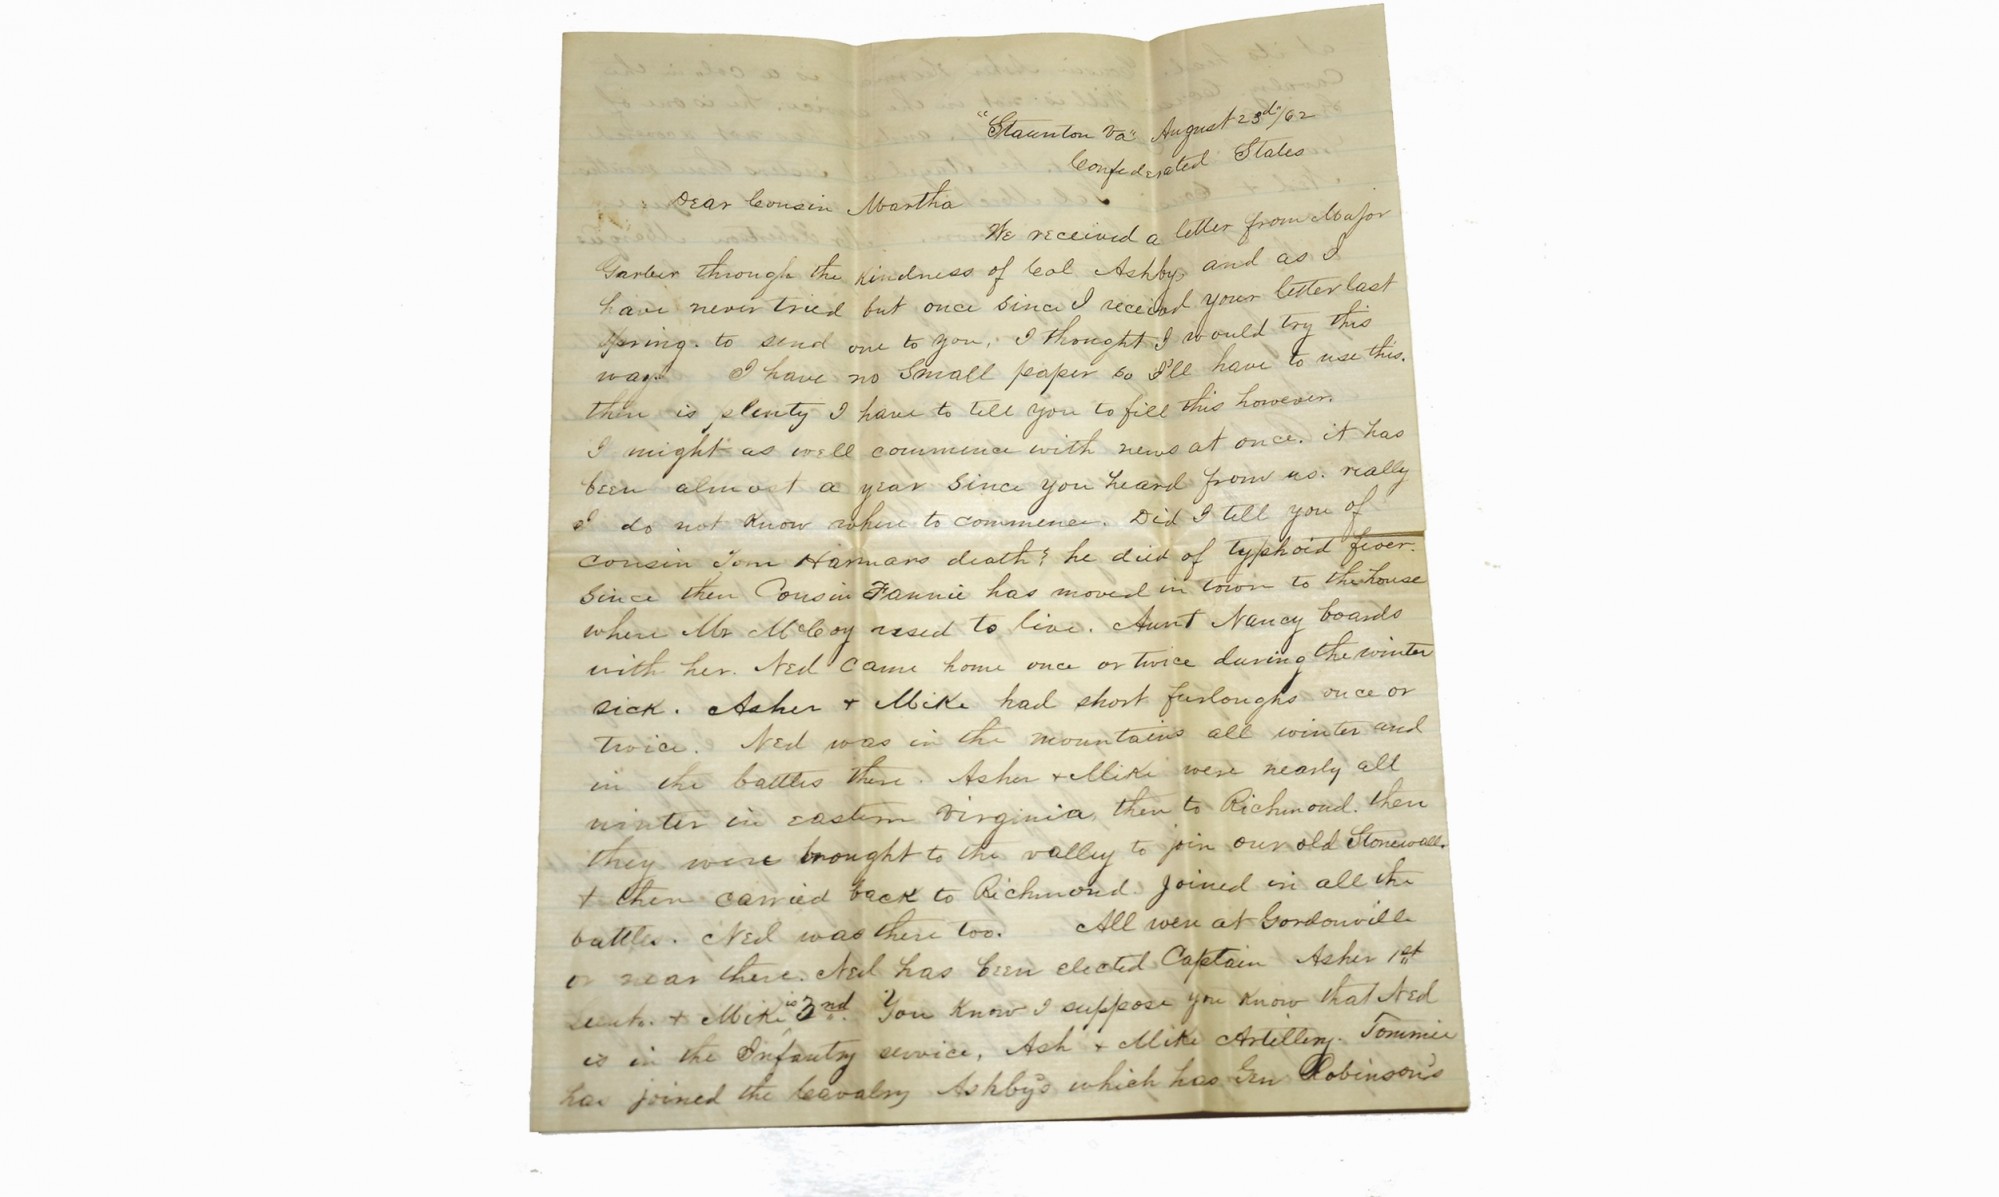 "Staunton Va" August 23d/62
Confederated States
Dear Cousin Martha
We received a letter from Major
Garber through the kindness of Col Ashby, and as I
have never tried but once since I received your letter last
Spring. to send one to you, I thought I would try this
way. I have no small paper so I'll have to use this.
then is plenty I have to tell you to fill this however.
I might as well commence with news at once. it has
been almost a year since you heard from us. really
I do not know where to commence. Did I tell you of
Cousin Tom Harmans death? he died of typhoid fever.
Since then Cousin Fannie has moved in town to the house
where Mr McCoy used to live. Aunt Nancy boards
with her. Ned came home once or twice during the winter
sick. Asher + Mike had short furloughs once or
twice. Ned was in the mountains all winter and
in the battles there. Asher + Mike were nearly all
winter in eastern Virginia, then to Richmond. then
they were brought to the valley to join our old Stonewall.
+ then carried back to Richmond. joined in all the
battles. Ned was there too. All were at Gordonville
or near there. Ned has been elected Captain Asher 1st
Lieut. + Mike is 2nd. You know I suppose you know that Ned
is in the Infantry service, Ash + Mike Artillery. Tommie
has joined the Cavalry Ashby's which has Gen Robinson's